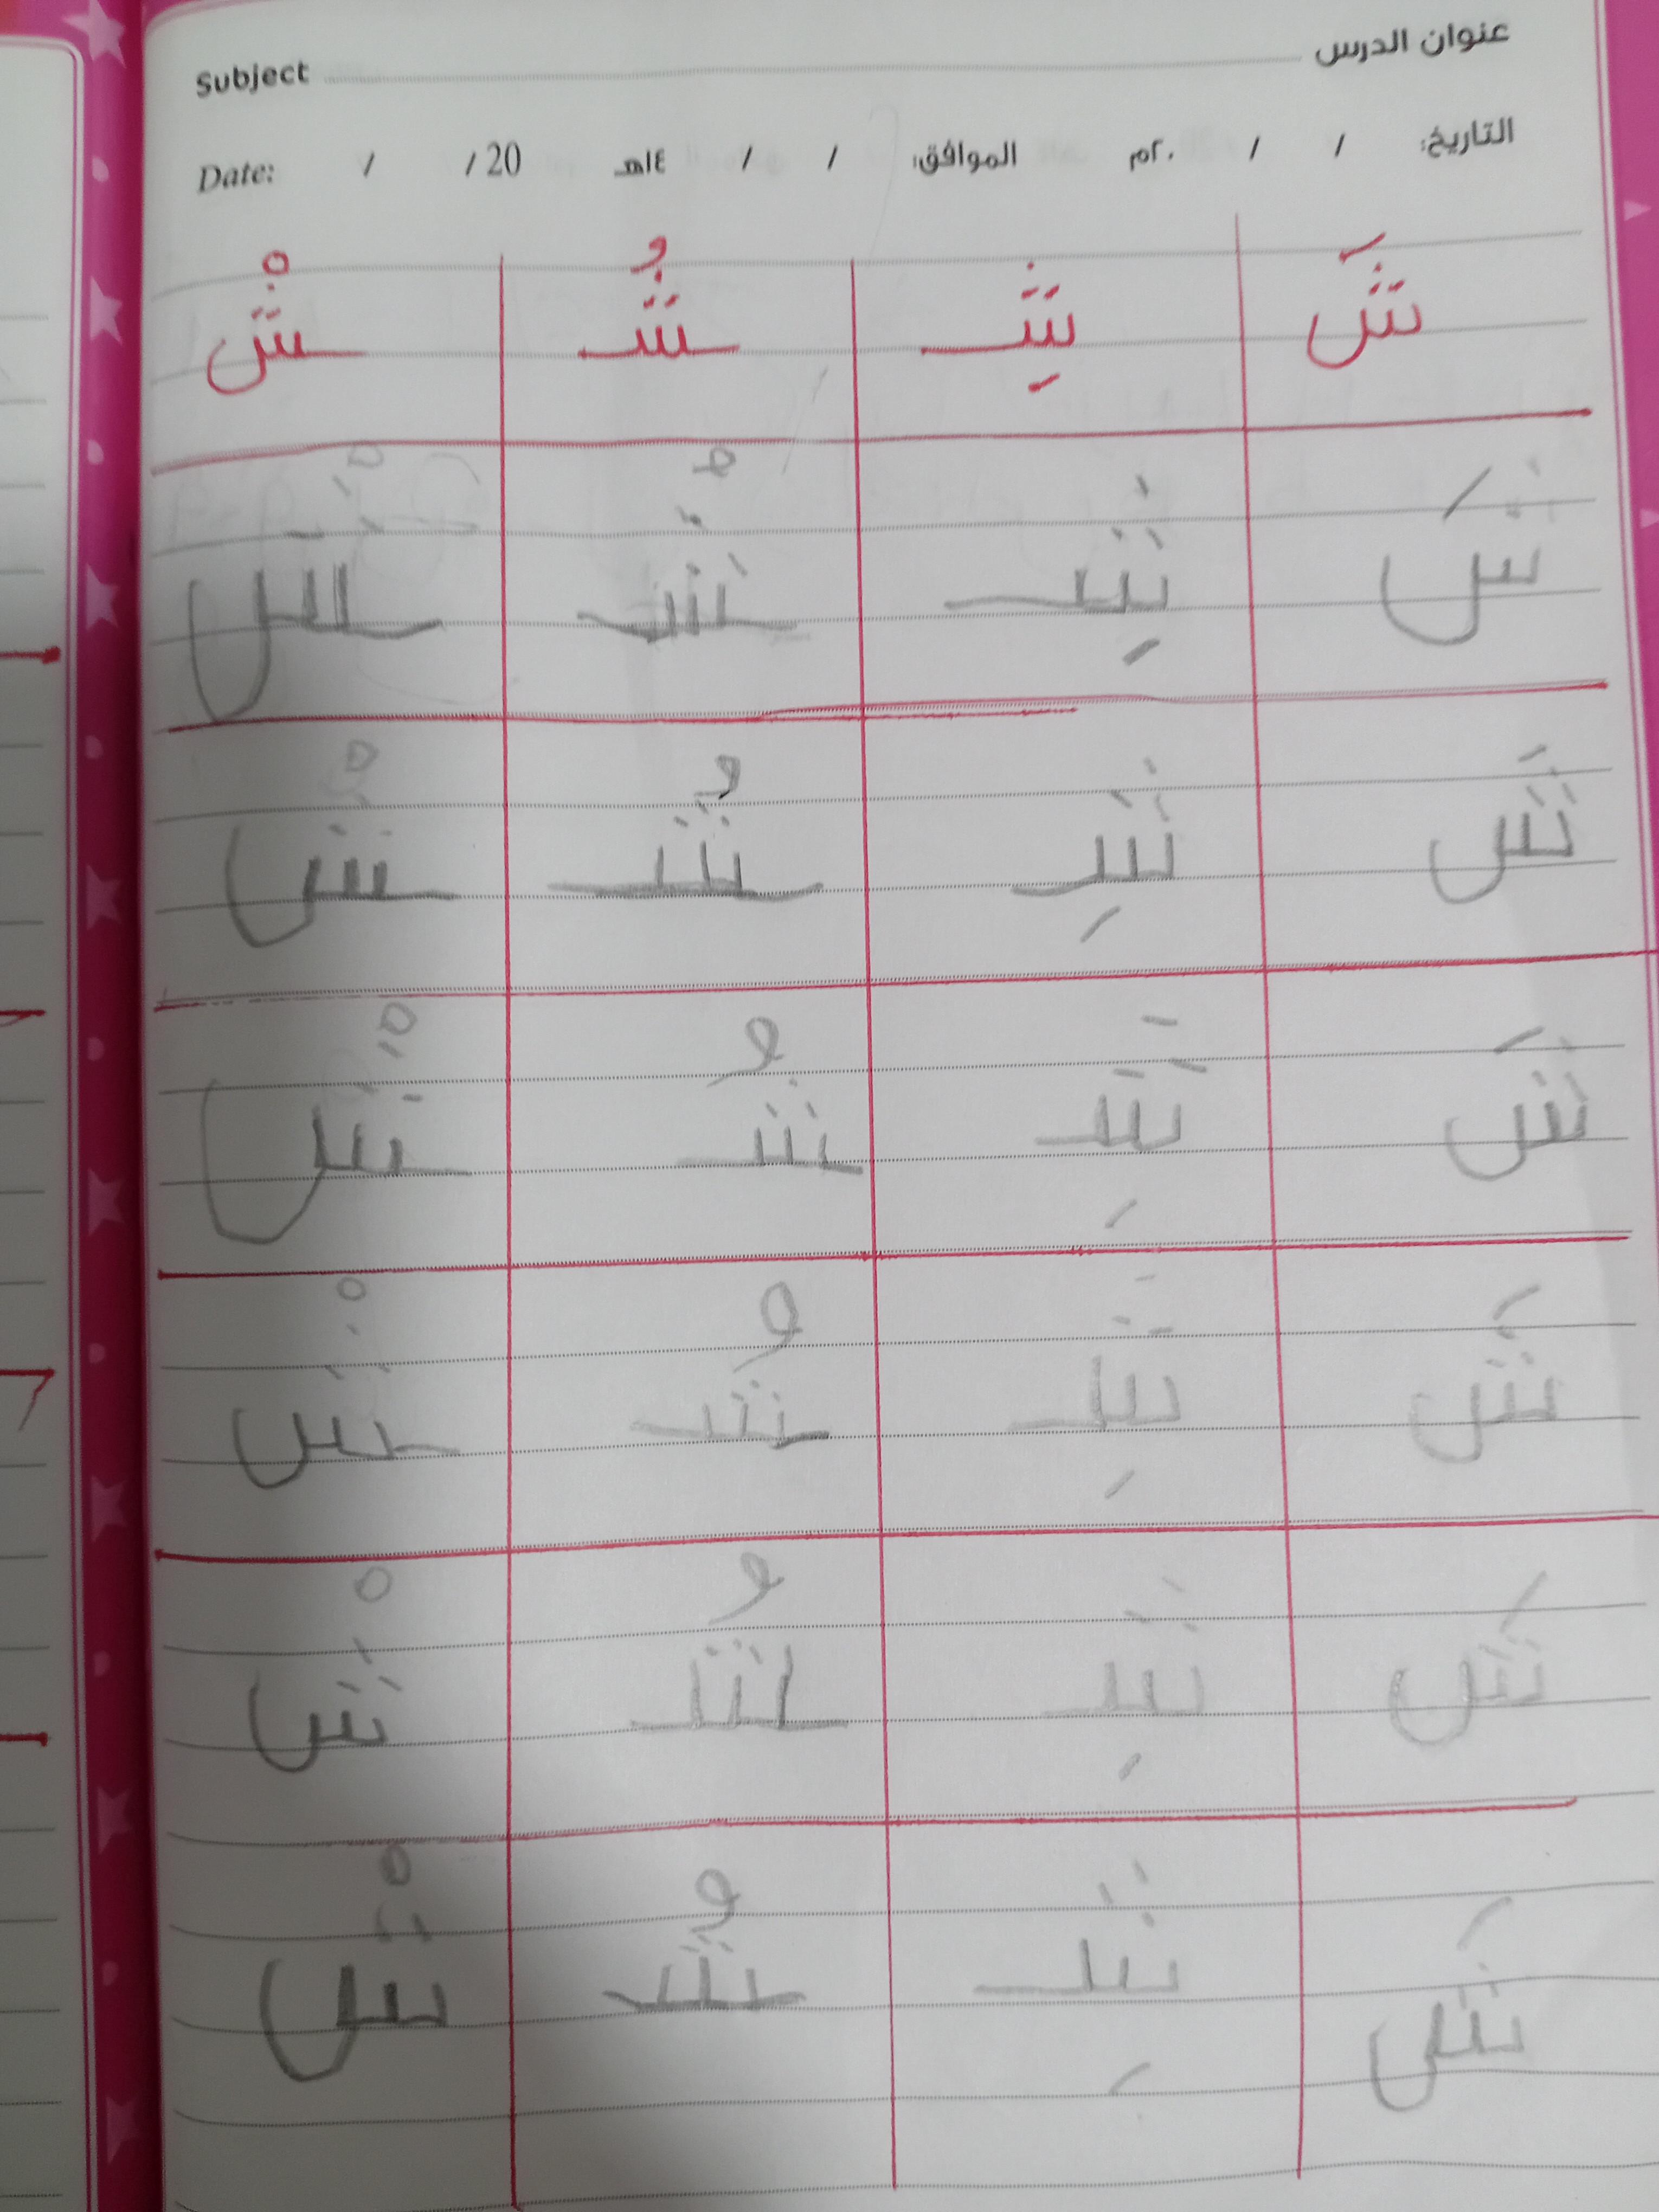 عنوان الدرس Subject
التاريخ: / / ٢٠م الموافق: / / ١٤هـ Date: / / 20
شَ شِـ ـشُـ ـشْ
شَ شِـ ـشُـ ـشْ
شَ شِـ ـشُـ ـشْ
شَ شِـ ـشُـ ـشْ
شَ شِـ ـشُـ ـشْ
شَ شِـ ـشُـ شْ
شَ شِـ ـشُـ شْ